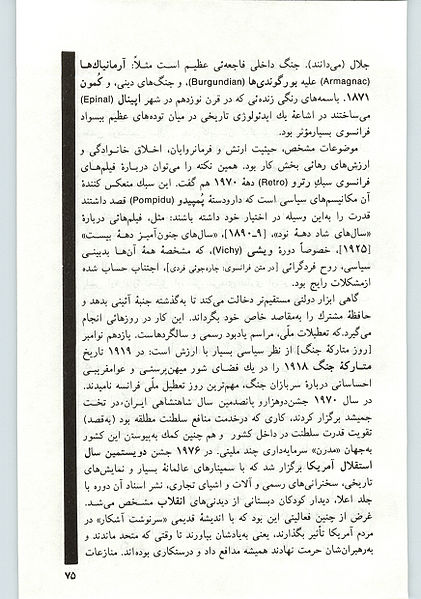 جلال (می‌دانند). جنگ داخلی فاجعه‌ئی عظیم است مثلاً: آرمانیاك‌ها
(Armagnac) علیه بورگوندی‌ها (Burgundian)، و جنگ‌های دینی، و کُمون
۱۸۷۱. باسمه‌های رنگی زنده‌ئی که در قرن نوزدهم در شهر اپینال (Epinal)
می‌ساختند در اشاعهٔ یك ایدئولوژی تاریخی در میان توده‌های عظیم بیسواد
فرانسوی بسیارمؤثر بود.
موضوعات مشخص، حیثیت ارتش و فرمانروایان، اخلاق خانوادگی و
ارزش‌های رهائی بخش کار بود. همین نکته را می‌توان دربارهٔ فیلم‌های
فرانسوی سبكِ رِترو (Retro) دههٔ ۱۹۷۰ هم گفت. این سبك منعکس کنندهٔ
آن مکانیسم‌های سیاسی است که دارودستهٔ پُمپیدو (Pompidu) قصد داشتند
قدرت را به‌این وسیله در اختیار خود داشته باشند: مثل، فیلم‌هائی دربارهٔ
«سال‌های شاد دههٔ نود»، [۹ـ۱۸۹۰]، «سال‌های جنون‌آمیز دههٔ بیست»
[۱۹۲۵]، خصوصاً دورهٔ ویشی (Vichy)، که مشخصهٔ همهٔ آن‌ها بدبینی
سیاسی، روح فردگرائی [در متن فرانسوی: چاره‌جوئی فردی]، اجتناب حساب شده
ازمشکلات رایج بود.
گاهی ابزار دولتی مستقیم‌تر دخالت می‌کند تا به‌گذشته جنبهٔ آئینی بدهد و
حافظهٔ مشترك را به‌مقاصد خاص خود بگرداند. این کار در روزهائی انجام
می‌گیرد.که تعطیلات ملّی، مراسم یادبود رسمی و سالگردهاست. یازدهم نوامبر
[روز متارکهٔ جنگ] از نظر سیاسی بسیار با ارزش است: در ۱۹۱۹ تاریخ
متـارکهٔ جنگ ۱۹۱۸ را در یك فضـای شور میهن‌پرستـی و عوامفریبـی
احساساتی دربارهٔ سربازان جنگ، مهم‌ترین روز تعطیل ملّی فرانسه نامیدند.
در سال ۱۹۷۰ جشن‌دوهزارو پانصدمین سال شاهنشاهی ایران،در تخت
جمیشد برگزار کردند، کاری که درخدمت منافع سلطنت مطلقه بود (به‌قصد)
تقویت قدرت سلطنت در داخل کشور و هم چنین کمك به‌پیوستن این کشور
به‌جهان «مدرن» سرمایه‌داری چند ملیتی. در ۱۹۷۶ جشن دویستمین سال
استقلال آمریکا برگزار شد که با سمینارهای عالمانهٔ بسیار و نمایش‌های
تاریخی، سخنرانی‌های رسمی و آلات و اشیای تجاری، نشر اسناد آن دوره با
جلد اعلا، دیدار کودکان دبستانی از دیدنی‌های انقلاب مشخص می‌شد.
غرض از چنین فعالیتی این بود که با اندیشهٔ قدیمی «سرنوشت آشکار» در
مردم آمریکا تأثیر بگذارند، یعنی به‌یادشان بیاورند تا وقتی که متحد ماندند و
به‌رهبران‌شان حرمت نهادند همیشه مدافع داد و درستکاری بوده‌اند. منازعات
۷۵